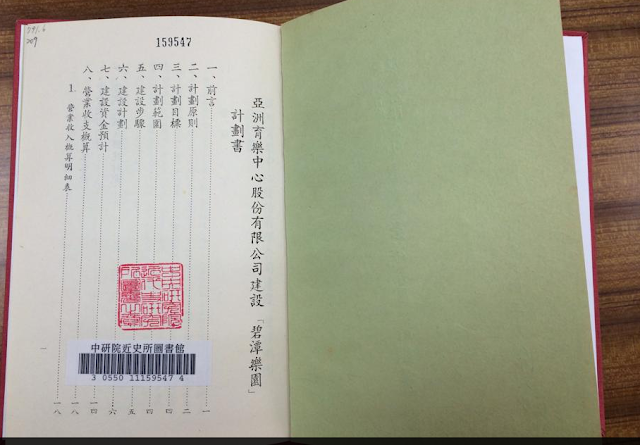 159547
亞洲育樂中心股份有限公司建設「碧潭樂園」
計劃書
一、前言 一
二、計劃原則 二
三、計劃目標
四、計劃範圍 四
五、建設步驟 四
六、建設計劃 六
七、建設資金預計 一四
八、營業收支概算 一八
1. 營業收入概算明細表 一八
中研院近史所圖書館
3 0550 11159547 4
一